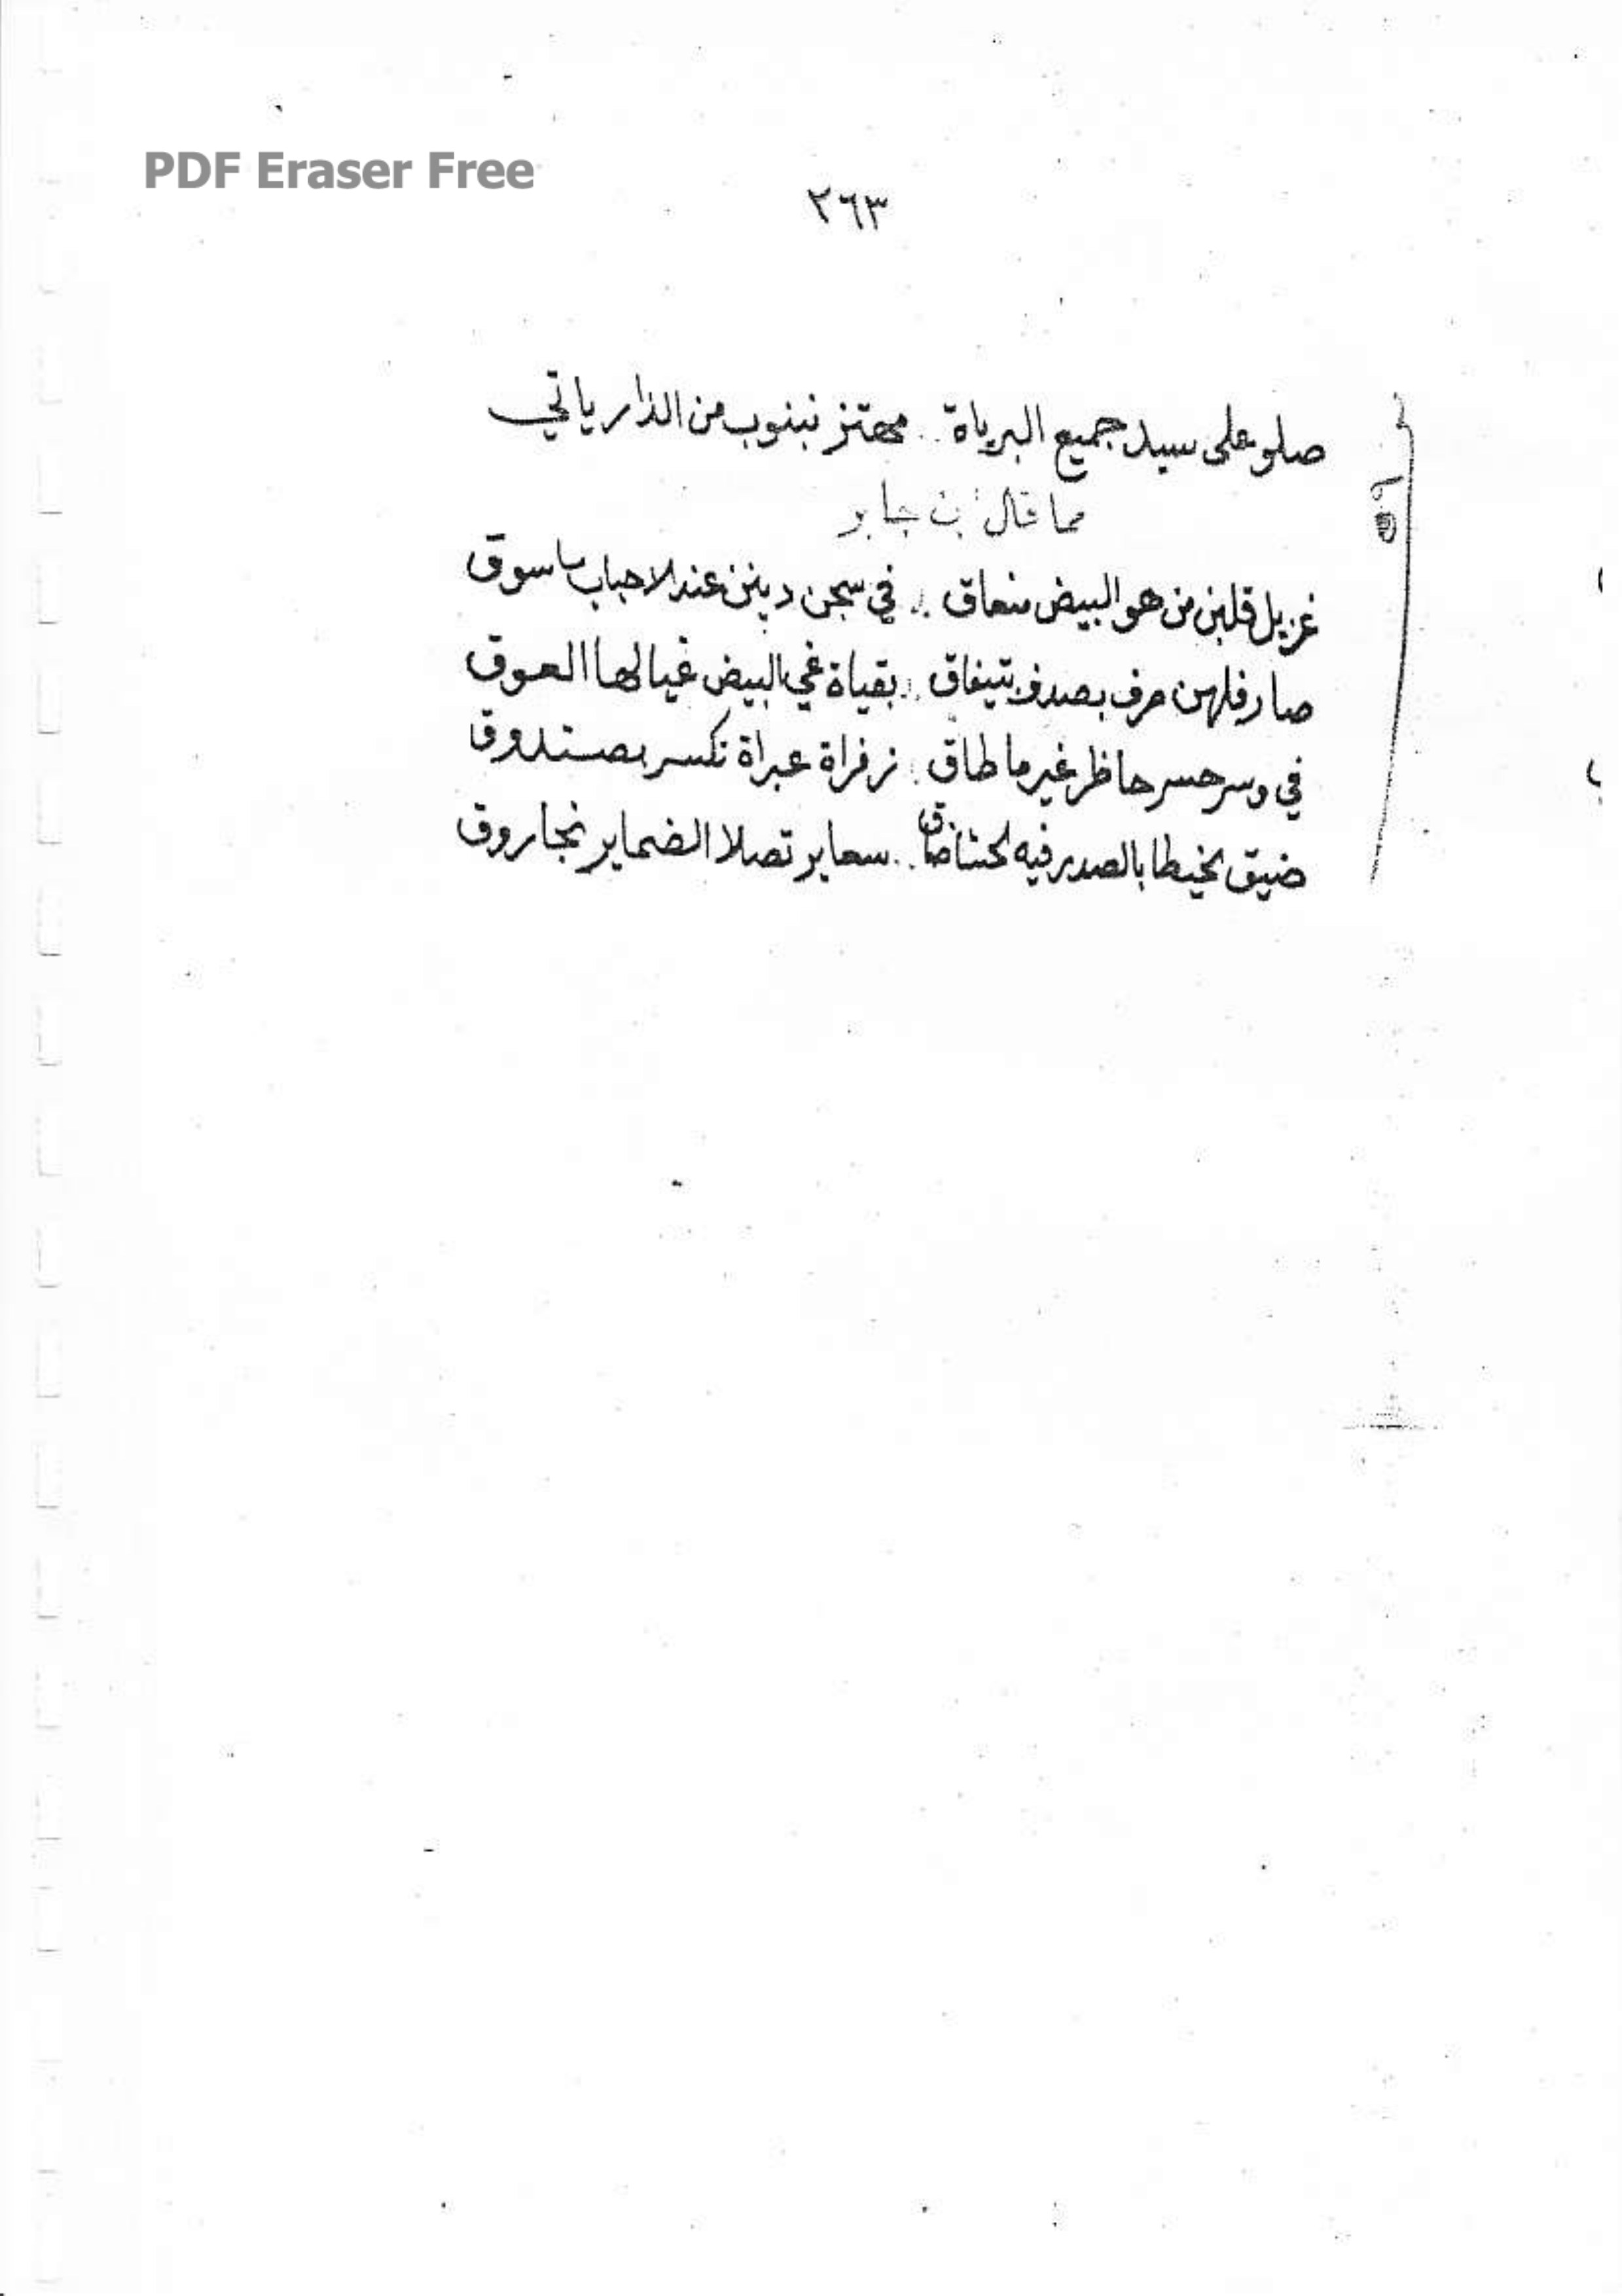 PDF Eraser Free
٢٦٣
صلو على سيد جميع البرياة .. محتز نبنوب من الذار ياتي
مما قال بن جابر
غزيل قلبن من هو البيض منعاق .. في سجن دينن عند الاحباب ماسوق
صارفلهن صرف بصدف تيفاق .. بقياة غي البيض غيالها العوق
في وسر حسر حاظر غير ما طاق .. زفراة عبراة تكسر بصندوق
ضيق بالصدر فيه ضاق .. سعاير تصلا الضماير نجاروق